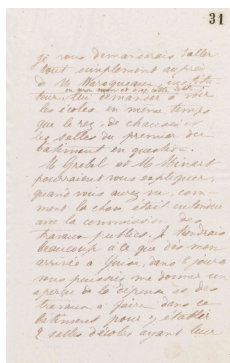 31
je vous demanderais d'aller
tout simplement auprès
de M. Maroqueaux institu
en mon nom et avec cette lettre
teur, lui demander à voir
les écoles en même temps
que le rez-de-chaussée
les salles du premier du
bâtiment en question.
M. Grebel et M. Minart
pourraient vous expliquer,
quand vous aurez vu, com-
ment la chose était entendue
avec la commission des
travaux publics. Je tiendrais
beaucoup à ce que dès mon
arrivée à Guise, dans 8 jours
vous puissiez me donner un
aperçu de la dépense des
travaux à faire dans ce
bâtiment pour y établir
2 salles d'écoles ayant leur